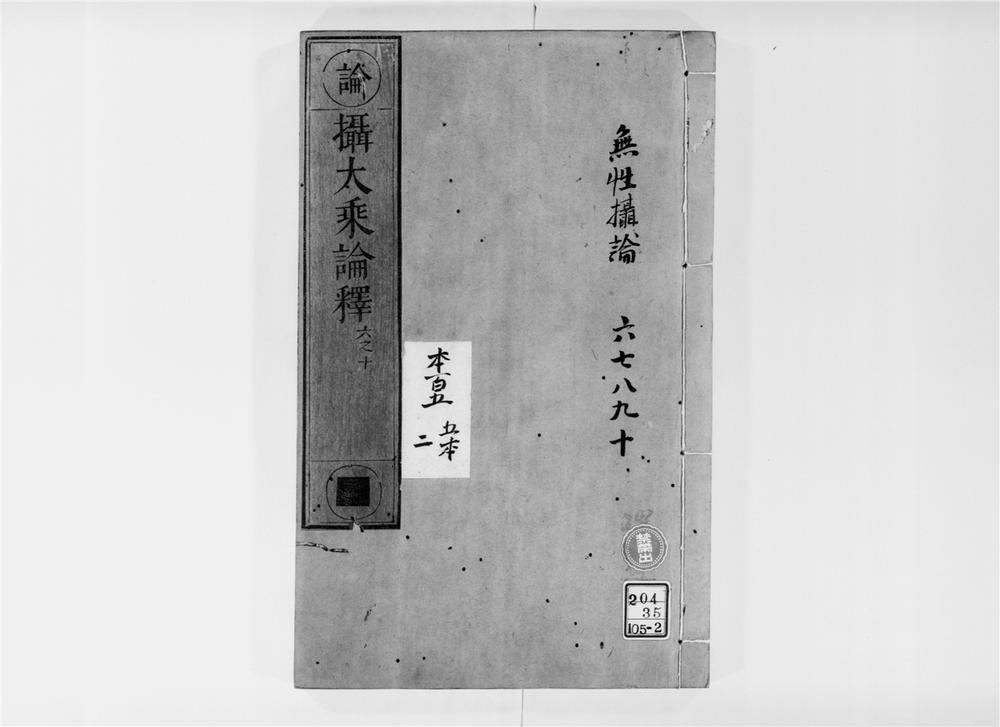 無性攝論 六七八九十
論
攝大乘論釋六之十
本百五
五本
二
禁帶出
204
35
105-2